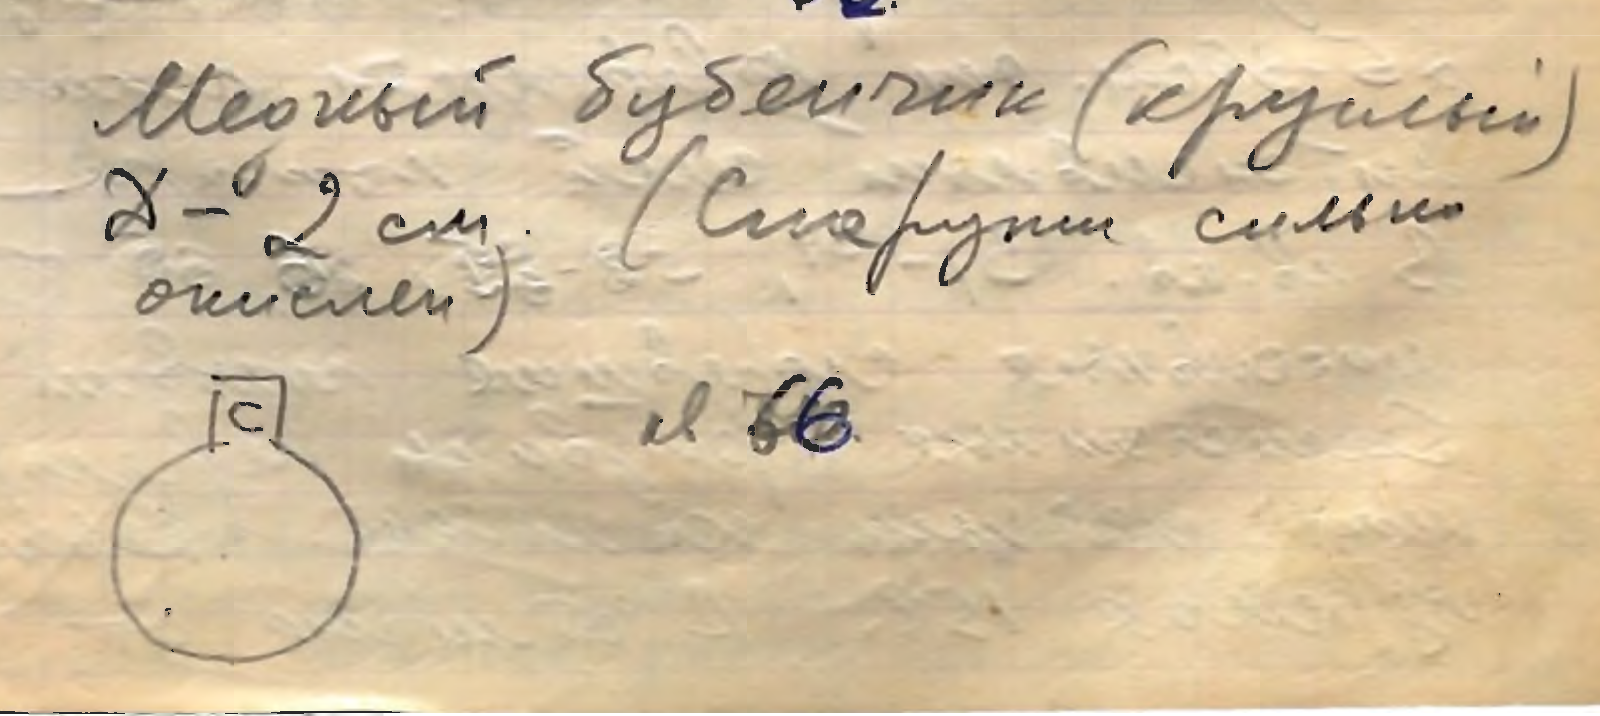 Медный бубенчик (круглый)
д - 2 см. (Снаружи сильно
окислен)
С
№ 66